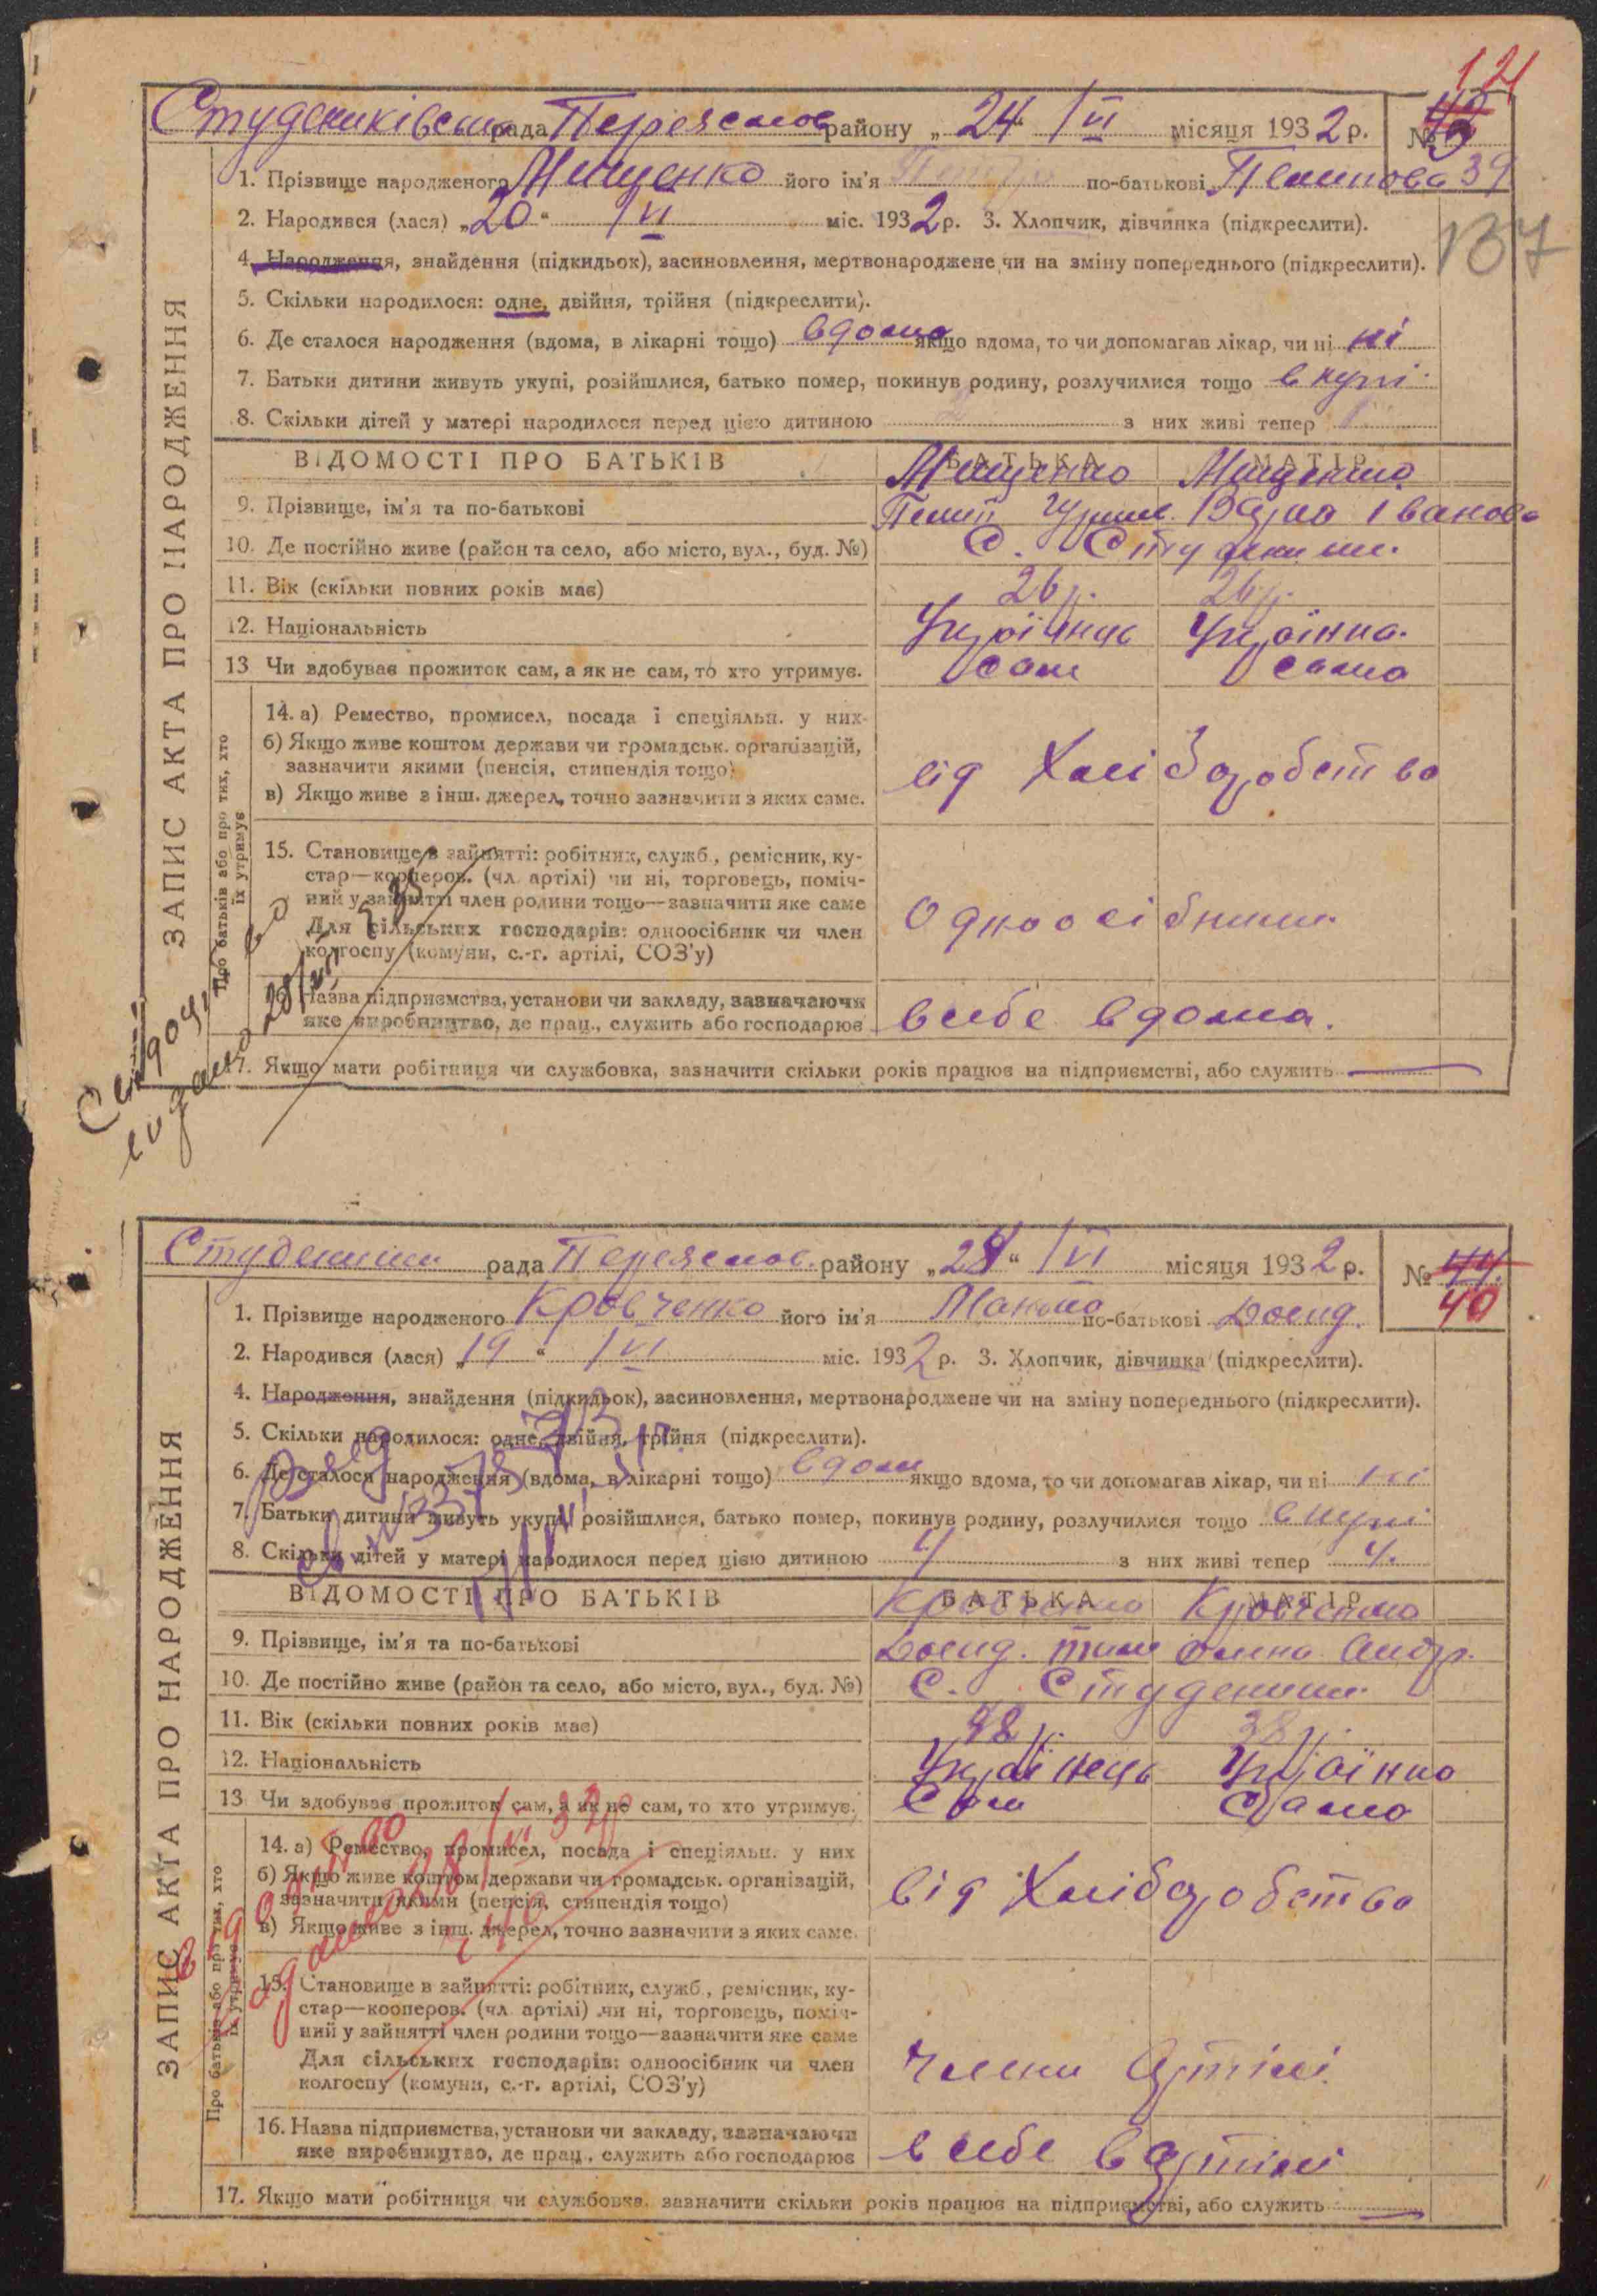 121
Студениківська рада Переяслов району „24“ VI місяця 1932 р. №
39
1. Прізвище народженого Мищенко його ім'я Петро по-батькові
137
2. Народився (лася) „20“ VI міс. 1932 р. 3. Хлопчик, дівчинка (підкреслити).
4. Народження, знайдення (підкидьок), засиновлення, мертвонароджене чи на зміну попереднього (підкреслити).
5. Скільки народилося: одне, двійня, трійня (підкреслити).
6. Де сталося народження (вдома, в лікарні тощо) вдома якщо вдома, то чи допомагав лікар, чи ні ні
7. Батьки дитини живуть укупі, розійшлися, батько помер, покинув родину, розлучилися тощо вкупі
8. Скільки дітей у матері народилося перед цією дитиною 2 з них живі тепер 1
ВІДОМОСТІ ПРО БАТЬКІВ БАТЬКА МАТІР
Мищенко Мищенко
9. Прізвище, ім'я та по-батькові Іванов
10. Де постійно живе (район та село, або місто, вул., буд. №) С. Студеники
11. Вік (скільки повних років має) 26 р. 26 р.
12. Національність Українець Українка
13 Чи здобуває прожиток сам, а як не сам, то хто утримує. Сам Сама
14. а) Ремество, промисел, посада і спеціяльн. у них
б) Якщо живе коштом держави чи громадськ. організацій,
зазначити якими (пенсія, стипендія тощо)
в) Якщо живе з інш. джерел, точно зазначити з яких саме.
від Хліборобства
15. Становище в зайнятті: робітник, служб., ремісник, ку-
стар—коопе­ров. (чл. артілі) чи ні, торговець, поміч-
ний у зайнятті член родини тощо—зазначити яке саме
Для сільських господарів: одноосібник чи член
колгоспу (комуни, с.-г. артілі, СОЗ'у)
Одноосібники
16. Назва підприємства, установи чи закладу, зазначаючи
яке виробництво, де прац., служить або господарює
в себе вдома.
17. Якщо мати робітниця чи службовка, зазначити скільки років працює на підприємстві, або служить
ЗАПИС АКТА ПРО НАРОДЖЕННЯ
Про батьків або про тих, хто
їх утримує
видано
Студеники рада Переяслов. району „28“ VI місяця 1932 р. № 44
40
1. Прізвище народженого Кровченко його ім'я по-батькові
2. Народився (лася) „19“ VI міс. 1932 р. 3. Хлопчик, дівчинка (підкреслити).
4. Народження, знайдення (підкидьок), засиновлення, мертвонароджене чи на зміну попереднього (підкреслити).
5. Скільки народилося: одне, двійня, трійня (підкреслити).
6. Де сталося народження (вдома, в лікарні тощо) вдома якщо вдома, то чи допомагав лікар, чи ні ні
7. Батьки дитини живуть укупі, розійшлися, батько помер, покинув родину, розлучилися тощо вкупі
8. Скільки дітей у матері народилося перед цією дитиною 4 з них живі тепер 4.
ВІДОМОСТІ ПРО БАТЬКІВ БАТЬКА МАТІР
Кровченко Кровченко
9. Прізвище, ім'я та по-батькові Андр.
10. Де постійно живе (район та село, або місто, вул., буд. №) С. Студеники
11. Вік (скільки повних років має) 38 р. 38 р.
12. Національність Українець Українка
13 Чи здобуває прожиток сам, а як не сам, то хто утримує. Сам Сама
14. а) Ремество, промисел, посада і спеціяльн. у них
б) Якщо живе коштом держави чи громадськ. організацій,
зазначити якими (пенсія, стипендія тощо)
в) Якщо живе з інш. джерел, точно зазначити з яких саме.
від Хліборобства
15. Становище в зайнятті: робітник, служб., ремісник, ку-
стар—кооперов. (чл. артілі) чи ні, торговець, поміч-
ний у зайнятті член родини тощо—зазначити яке саме
Для сільських господарів: одноосібник чи член
колгоспу (комуни, с.-г. артілі, СОЗ'у)
члени Артілі
16. Назва підприємства, установи чи закладу, зазначаючи
яке виробництво, де прац., служить або господарює
в себе в артілі
17. Якщо мати робітниця чи службовка, зазначити скільки років працює на підприємстві, або служить
ЗАПИС АКТА ПРО НАРОДЖЕННЯ
Про батьків або про тих, хто
їх утримує